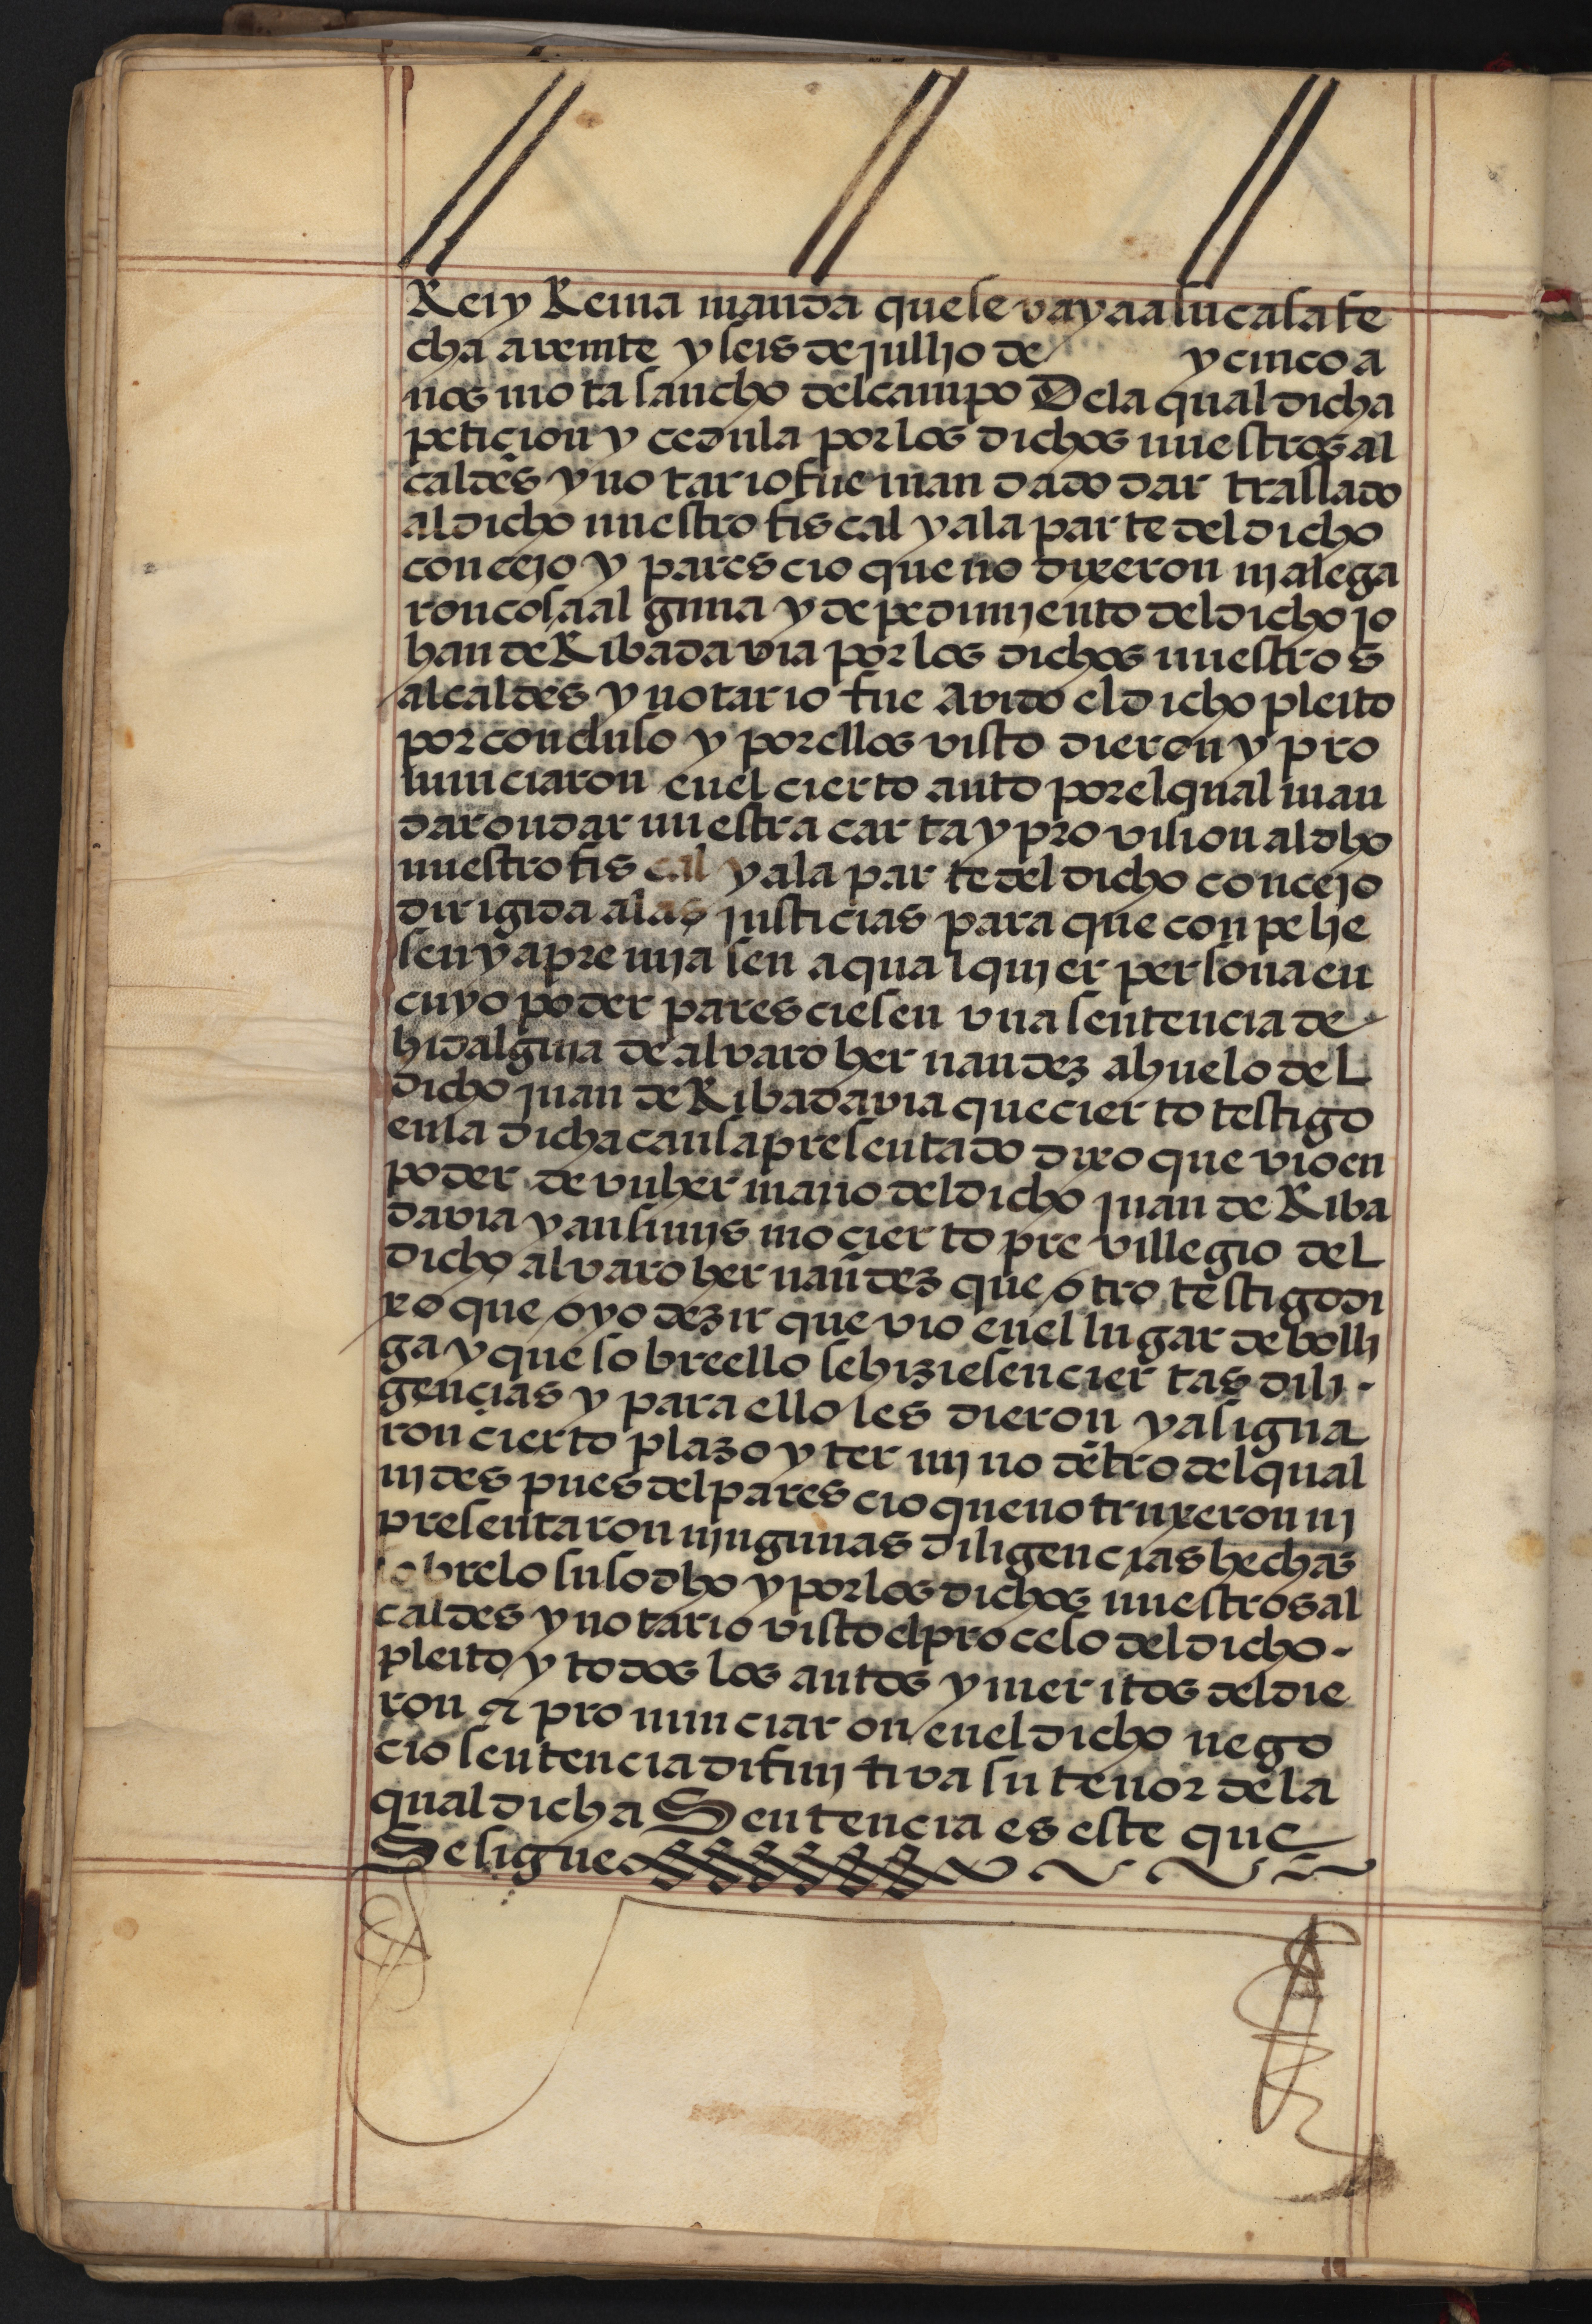 Rei y Reina manda que se vaya a su casa fe
cha a veinte y seis de jullio de y cinco a
nos mota sancho del campo De la qual dicha
peticion y cedula por los dichos nuestros al
caldes y notario fue man dado dar trassado
al dicho nuestro fiscal y a la parte del dicho
concejo y parescio que no dixeron nj alega
ron cosa alguna y de pedimjento del dicho jo
han de Ribadavia por los dichos nuestros
alcaldes y notario fue avido el dicho pleito
por concluso y por ellos visto dieron y pro
nunciaron en el cierto auto por el qual man
daron dar nuestra carta y provision al dho
nuestro fiscal y a la parte del dicho concejo
dirigida a las justicias para que conpelie
sen y apremjasen a qualqujer persona en
cuyo poder paresciesen vna sentencia de
hidalguia de alvaro hernandez ahuelo del
dicho juan de Ribadavia que cierto testigo
en la dicha causa presentado dixo que vio en
poder de vn hermano del dicho juan de Riba
davia y ansimjs mo cierto previllegio del
dicho alvaro hernandez que otro testigo di
xo que oyo dezir que vio en el lugar de bolli
ga y que sobre ello se hiziesen ciertas dili-
gencias y para ello les dieron y asigna
ron cierto plazo y termjno dētro del qual
nj despues del parescio que no truxeron nj
presentaron njngunas diligencias hechas
sobre lo susodho y por los dichos nuestros al
caldes y notario visto el proceso del dicho-
pleito y todos los autos y meritos del die
ron & pronunciaron en el dicho nego
cio sentencia difinjtiva su tenor de la
qual dicha Sentencia es este que
Se sigue